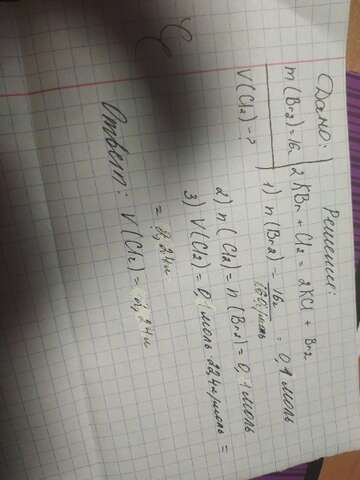 Дано:
Решение:
m(Br2)=16г
2KBr + Cl2 = 2KCl + Br2
V(Cl2) - ?
1) n(Br2) = 16г / 160г/моль = 0,1 моль
2) n(Cl2) = n(Br2) = 0,1 моль
3) V(Cl2) = 0,1 моль · 22,4 л/моль =
= 2,24л
Ответ: V(Cl2) = 2,24л